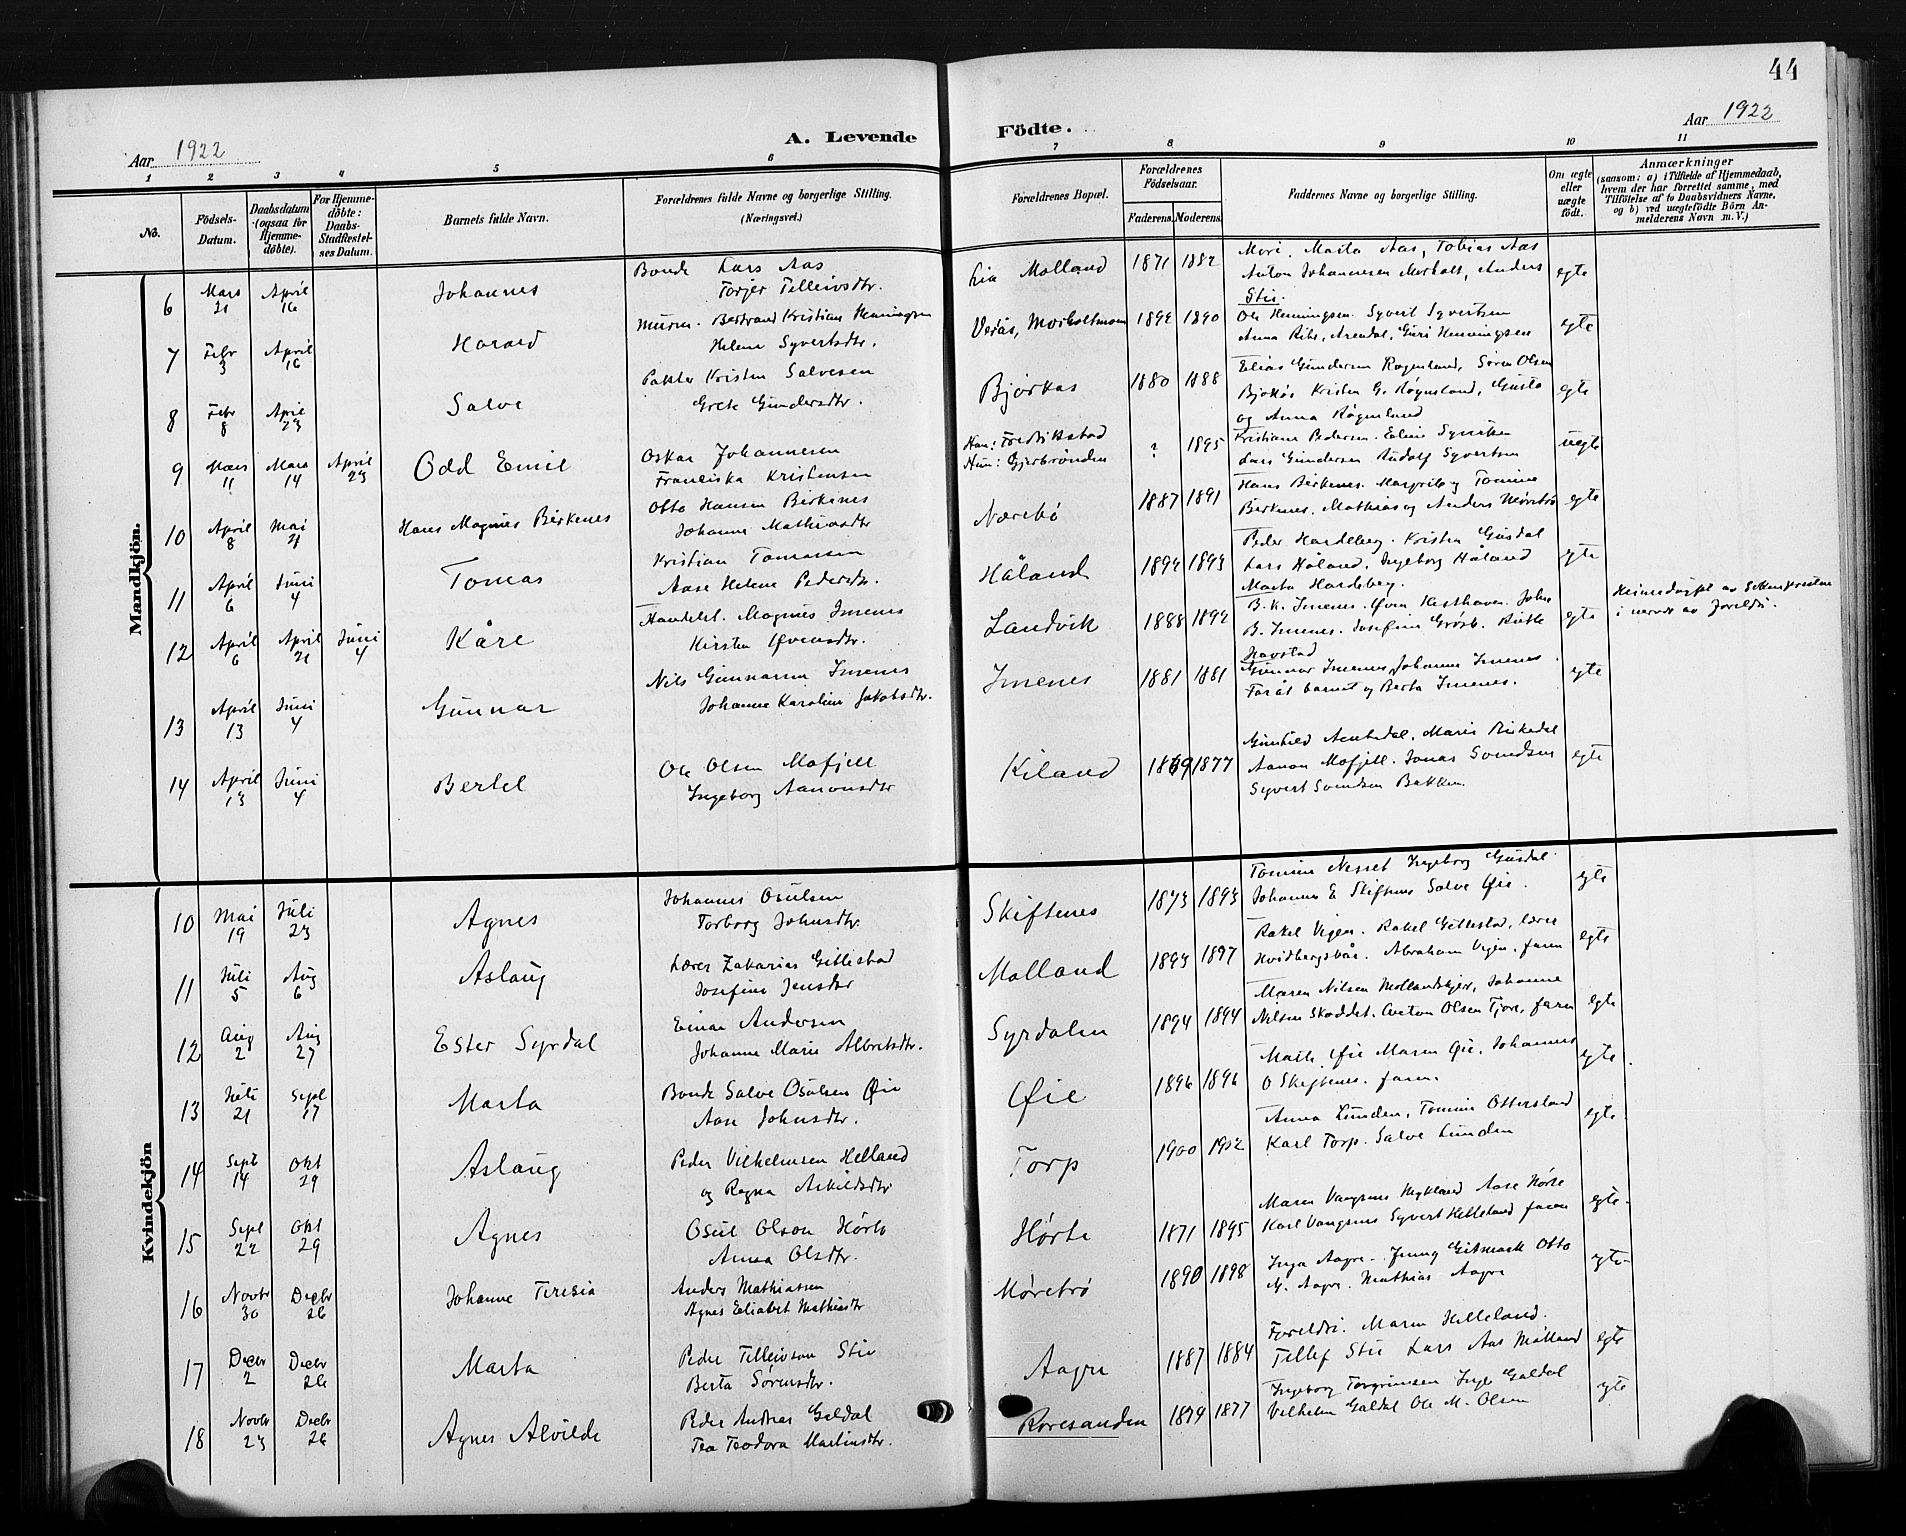 44
Aar 1922
A. Levende Födte.
Aar 1922
1 2 3 4 5 6 7 8 9 10 11
No.
Födsels-Datum.
Daabsdatum (ogsaa for Hjemmedöbte).
For Hjemmedöbte: Daabs-Stadfæstelses Datum.
Barnets fulde Navn.
Forældrenes fulde Navne og borgerlige Stilling. (Næringsvei.)
Forældrenes Bopæl.
Forældrenes Födselsaar.
Faderens. Moderens.
Faddernes Navne og borgerlige Stilling.
Om ægte eller uægte födt.
Anmærkninger
(saasom: a) i Tilfælde af Hjemmedaab, hvem der har forrettet samme, med Tilföielse af to Daabsvidners Navne, og b) ved uægtefödte Börn Anmelderens Navn m. V.)
Mandkjön.
6 Mars 21 April 16 Johannes
Bonde Lars Aas
Torjer Telleivsdtr.
Lia Molland 1871 1882
Mori, Marta Aas, Tobias Aas
Anton Johannesen Morholt, Anders
Stie.
egte
7 Febr 3 April 16 Harald
Murm. Bertrand Kristian Henningsen
Helene Syvertsdtr.
Verås, Morholtmoen 1892 1890
Ole Henningsen. Syvert Syvertsen
Anna Ribe, Arendal, Guri Henningsen
egte
8 Febr 8 April 23 Salve
Pakter Kristen Salvesen
Grete Gundersdtr.
Bjørkås 1880 1888
Elias Gundersen Røgenland, Søren Olsen
Bjørkås Kristen G. Røgenland, Gusta
og Anna Røgenland
egte
9 Mars 11 Mars 14 April 23 Odd Emil
Oskar Johannesen
Franciska Kristensen
Han: Fredrikstad
Hun: Gjerbrønden
? 1895
Kristiane Pedersen. Eline Syvertsen
Lars Gundersen Rudolf Syvertsen
uegte
10 April 8 Mai 21 Hans Magnus Birkenes
Otto Hansen Birkenes
Johanne Mathiasdtr
Nærebø 1887 1891
Hans Birkenes. Margrit og Tomine
Birkenes. Mathias og Anders Mørebø
egte
11 April 6 Juni 4 Tomas
Kristian Tomassen
Aase Helene Pedersdtr.
Håland 1894 1893
Peder Hardeberg. Kristen Gusdal
Lars Håland, Ingeborg Håland
Marta Hardeberg.
egte
12 April 6 April 21 Juni 4 Kåre
Handelsl. Magnus Imenes
Kirsten Øvensdtr.
Landvik 1888 1892
B. K. Imenes. Øven Kesthaven. John
B. Imenes. Josefine Grøsb.
Havstad
egte
Heimedøypt av
i nærv. av foreldri.
13 April 13 Juni 4 Gunnar
Nils Gunnarsen Imenes
Johanne Karoline Jakobsdtr.
Imenes 1881 1881
Gunnar Imenes, Johanne Imenes
barnet og Berta Imenes.
egte
14 April 13 Juni 4 Bertel
Ole Olsen Mofjell
Ingeborg Aanonsdtr
Kiland 1869 1877
Gunhild Aentedal, Maria Birkedal
Aanon Mofjell. Jonas Svendsen
Syvert Svendsen Bakken.
egte
Kvindekjön
10 Mai 19 Juli 23 Agnes
Johannes Osulsen
Torborg Johnsdtr.
Skiftenes 1873 1893
Tomine Nesset Ingeborg Gusdal
Johannes E Skiftenes Salve Øie.
egte
11 Juli 5 Aug 6 Aslaug
Lærer Zakarias Gitlestad
Josefine Jensdtr
Molland 1893 1897
Rakel Vigen. Rakel Gitlestad, lærer
Hvidbergsbår. Abraham Vigen. faren
egte
12 Aug 2 Aug 27 Ester Syrdal
Einar Andersen
Johanne Marie Albretsdtr.
Syrdalen 1894 1894
Maren Nilsen Mollandskjer, Johanne
Nilsen Skoddet. Anton Olsen Tjore, faren
egte
13 Juli 21 Sept 17 Marta
Bonde Salve Osulsen Øie
Aase Johnsdtr.
Øie 1896 1896
Mathe Øie Maren Øie, Johannes
O Skiftenes. faren.
egte.
14 Sept 14 Okt 29 Aslaug
Peder Vilhelmsen Helland
og Ragna Askildsdtr
Torp 1900 1902
Anna Lunden, Tomine Ottersland
Karl Torp. Salve Lunden
egte
15 Sept 22 Okt 29 Agnes
Osul Olson Hørte
Anna Olsdtr.
Hørte 1871 1895
Maren Vangsnes Mykland Aase Hørte
Karl Vangsnes Syvert Helleland faren
egte.
16 Novbr 30 Decbr 26 Johanne Teresia
Anders Mathiassen
Agnes Elisabet Mathiasdtr
Mørebrø 1890 1898
Inga Aagre. Jenny Gitmark Otto
M. Aagre. Mathias Aagre
egte.
17 Decbr 2 Decbr 26 Marta
Peder Telleivson Stie
Berta Sørensdtr.
Aagre 1887 1884
Foreldri. Maren Helleland.
Tellef Stie Lars Aas Molland
egte
18 Novbr 23 Decbr 26 Agnes Alvilde
Peder Andreas Galdal
Tea Teodora Martinsdtr.
Roresanden 1874 1877
Ingeborg Torgrimsen Inga Galdal
Vilhelm Galdal Ole M. Olsen
egte